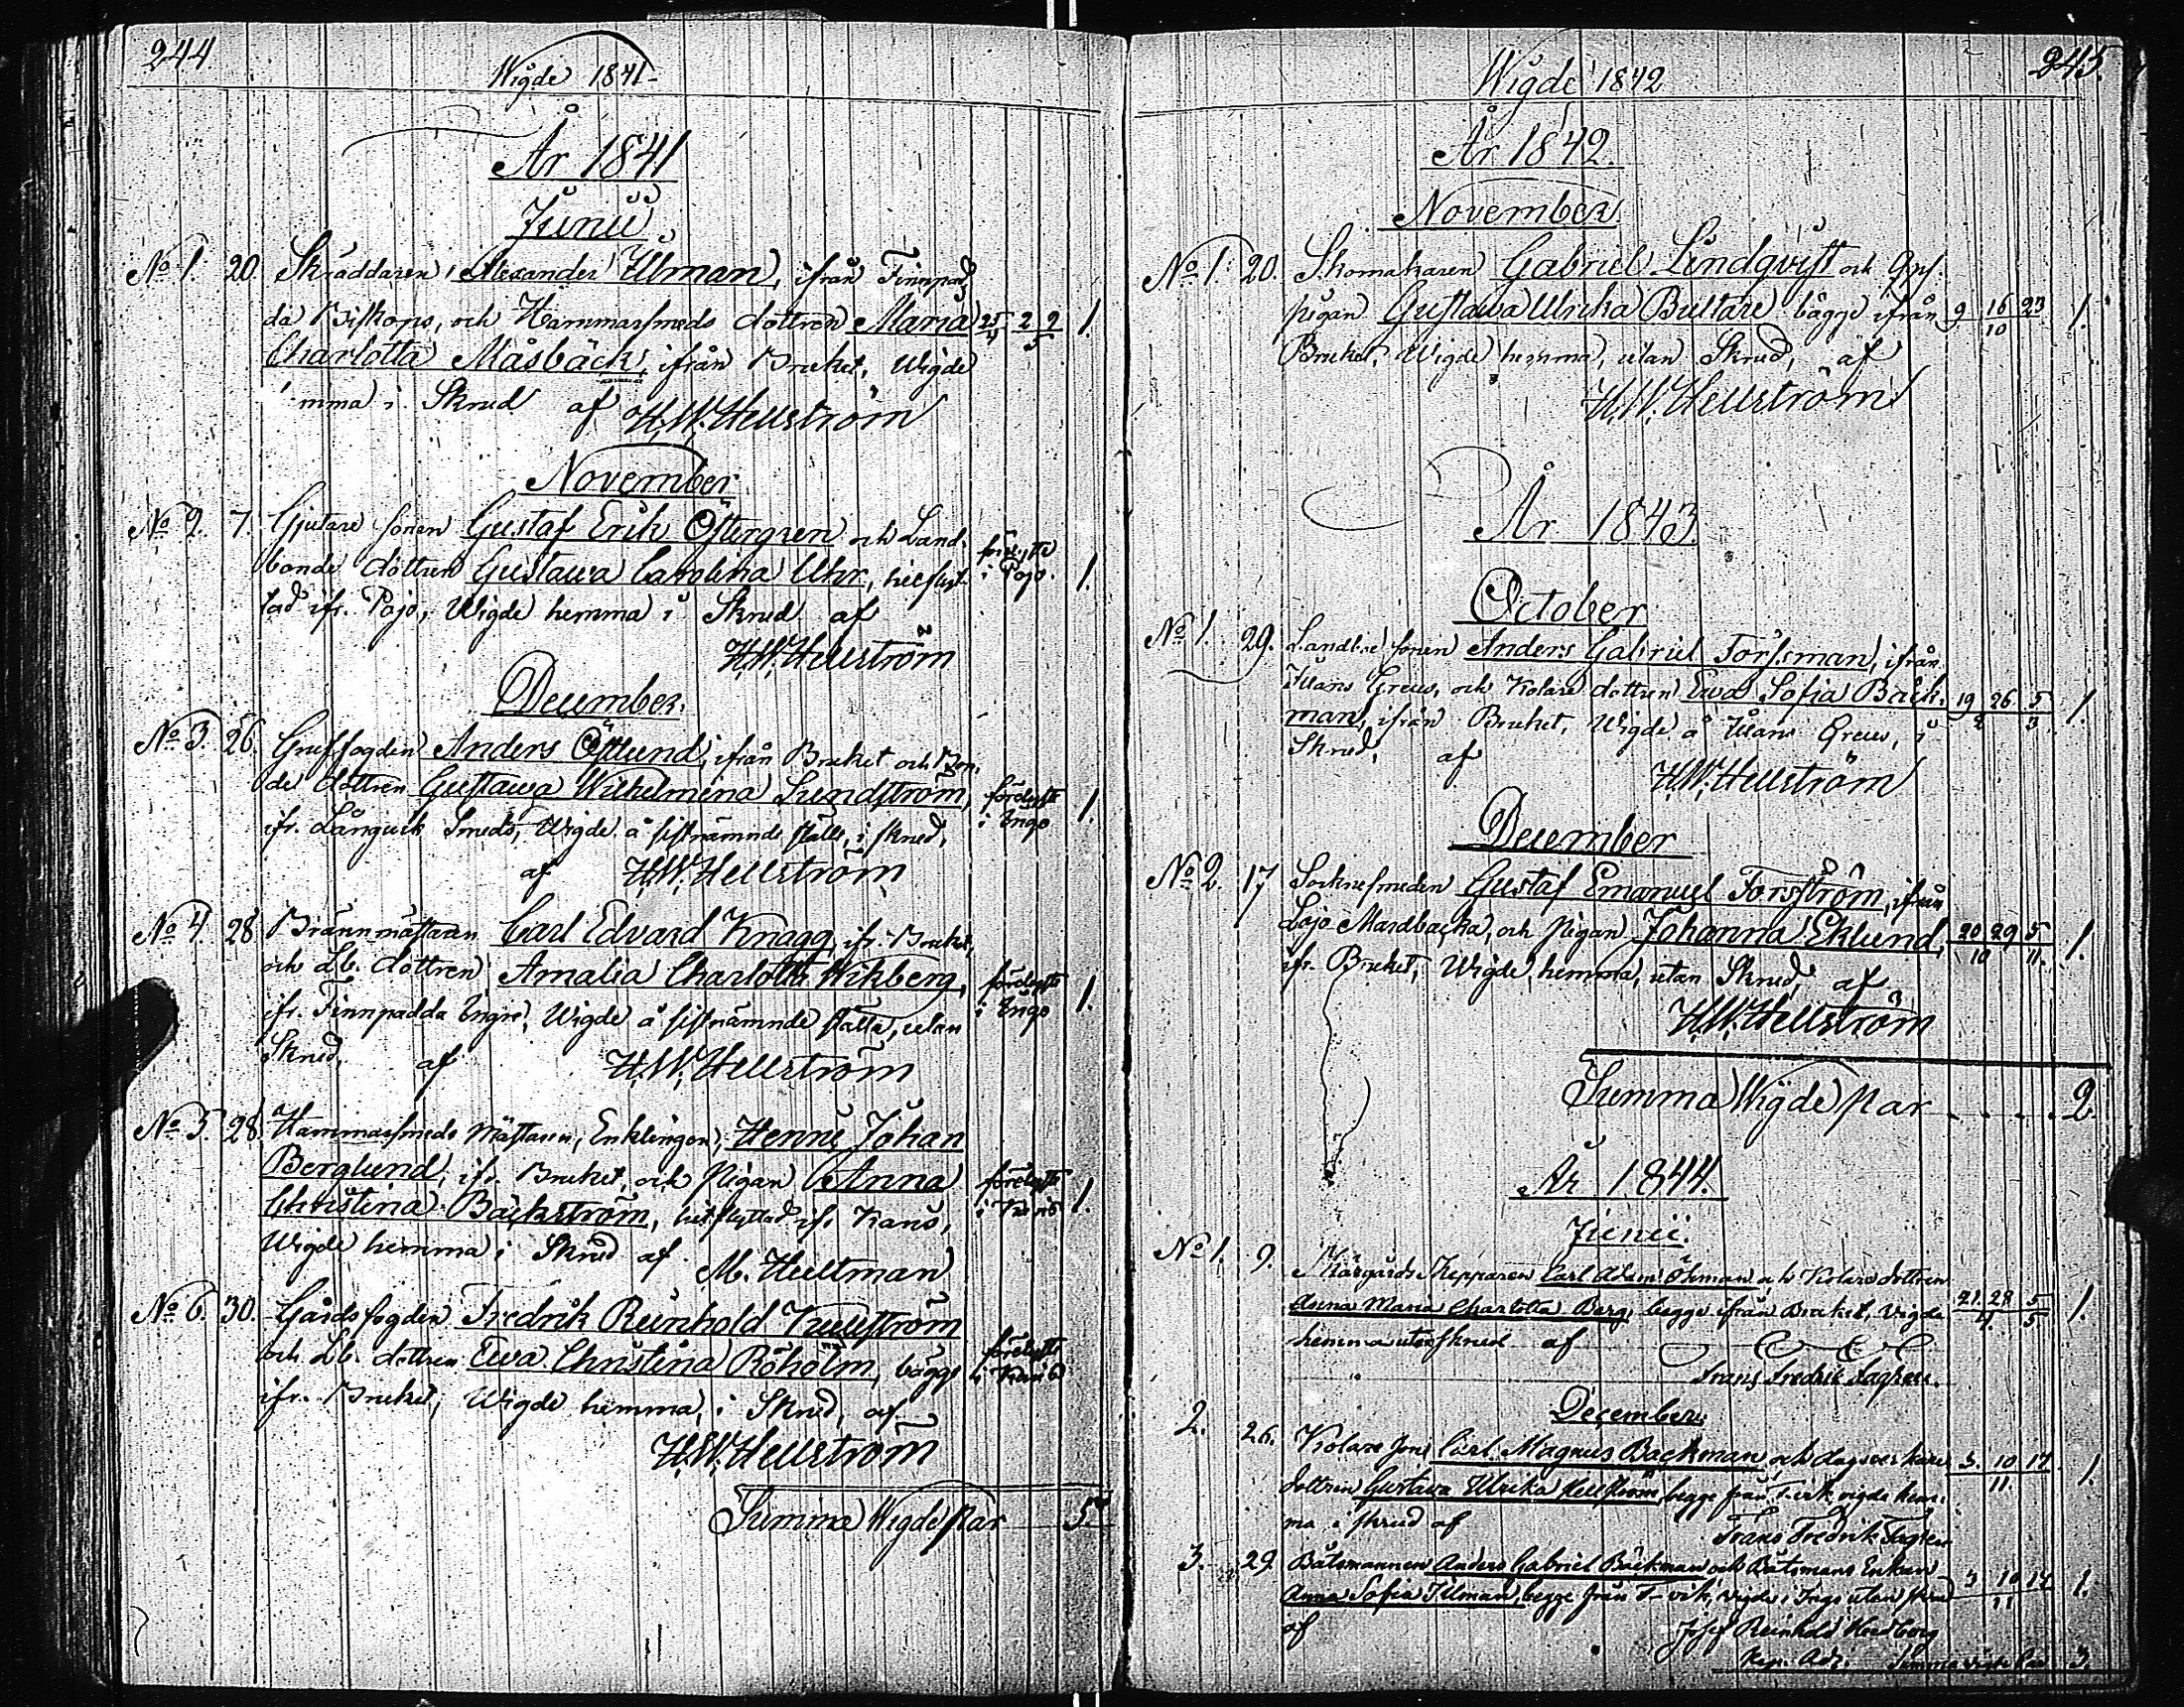 244
Wigde 1841
År 1841
Junii
No 1. 20. Skräddaren Alexander Ulman, ifrån Finnpad-
da Biskops, och Hammarsmeds dottren Maria 25 2 9 1.
4 5
Charlotta Måsbäck, ifrån Bruket, Wigde
mma i Skrud af H.W. Hellström
November
No 2. 7. Gjutare sonen Gustaf Erik Östergren och Land-
bonde dottren Gustawa Carolina Uhr, hitflyt-
i Pojo. 1.
tad ifr. Pojo, Wigde hemma i Skrud af
H.W. Hellström
December.
No 3. 26. Gruffogden Anders Östlund, ifrån Bruket och Bon-
de dottren Gustawa Wilhelmina Lundström,
i Ingo 1.
ifr. Långwik Smeds, Wigde å sistnämnde ställe, i skrud,
af H.W. Hellström
No 4. 28 Brännmästaren Carl Edvard Knagg ifr. Bruket,
och Lb. dottren Amalia Charlotta Wikberg,
i Ingo 1.
ifr. Finnpadda Wigde å sistnämnde ställe, utan
Skrud, af H.W. Hellström
No 5. 28. Hammarsmeds Mästaren, Enklingen, Henric Johan
Berglund, ifr. Bruket, och Pigan Anna
Christina Bäckström, hitflyttad ifr Karis,
i Karis 1.
Wigde hemma i Skrud af M. Hultman
No 6. 30. Gårdsfogden Fredrik Reinhold
och Lb. dottren Ewa Christina Röholm, bägge
i Karis
ifr. Bruket, Wigde hemma, i Skrud, af
H.W. Hellström
Summa Wigde Par 5.
245.
Wigde 1842
År 1842.
November
No 1. 20. Skomakaren Gabriel Lindqvist och
pigan Gustawa Ulrika Bultare bägge ifrån 9 16 23 1.
10
Bruket, Wigde hemma, utan Skrud, af
H.W. Hellström
År 1843.
October
No 1. 29. Landbo sonen Anders Gabriel Forssman, ifrån
Grews, och Kolare dottren Ewa Sofia Bäck- 19 26 5 1.
2 3
man, ifrån Bruket, Wigde å Grews, i
Skrud, af
H.W. Hellström
December
No 2. 17 Socknesmeden Gustaf Emanuel Forsström, ifrån
Lojo Mardbacka, och Pigan Johanna Eklund, 20 29 5 1.
10 11.
ifr. Bruket, Wigde hemma, utan Skrud, af
H.W. Hellström
Summa Wigde Par . . . . 2.
År 1844.
Junii.
No 1. 9. Skärgårds Skepparen Carl Adam Öhman och Kolare dottren
Anna Maria Charlotta Berg, begge ifrån Bruket, Vigde 21 28 5 1.
4 5
hemma utan skrud af
Frans Fredrik
December
2. 26. Kolare son Carl Magnus Backman och dagsverkare 3. 10 17 1.
11
dottren Gustava Ulrika Hellström, begge från F-vik vigde hem-
ma i skrud af
Frans Fredrik
3. 29 Båtsmannen Anders Gabriel Bäckman och Båtsmans Enkan
Anna Sofia Ulman, begge från F-vik, Wigde i Ingo utan skrud 3 10 17 1.
11
af Josef Reinhold Hedberg
Kap. Adj. Summa vigde Par 3.